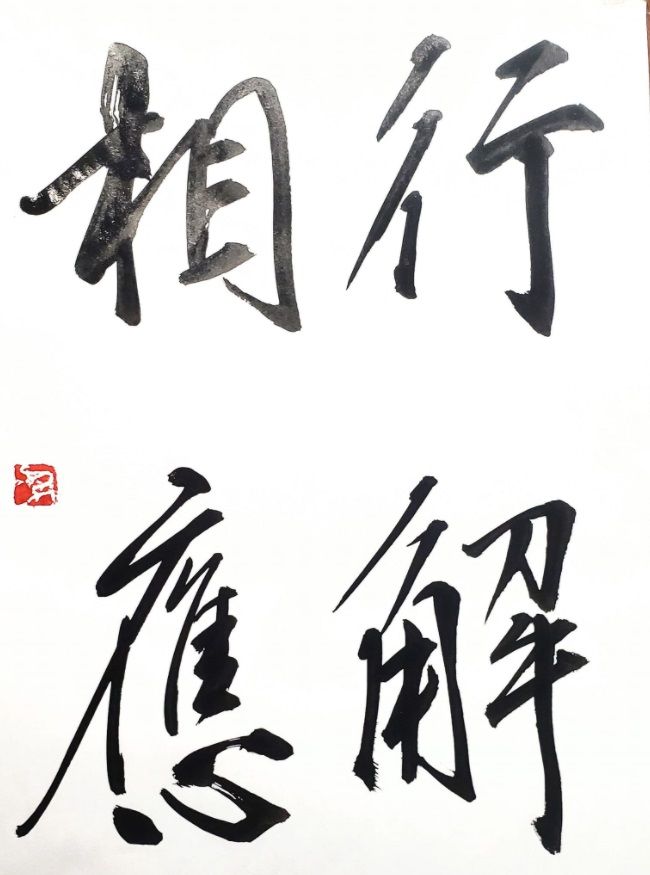 行解
相應